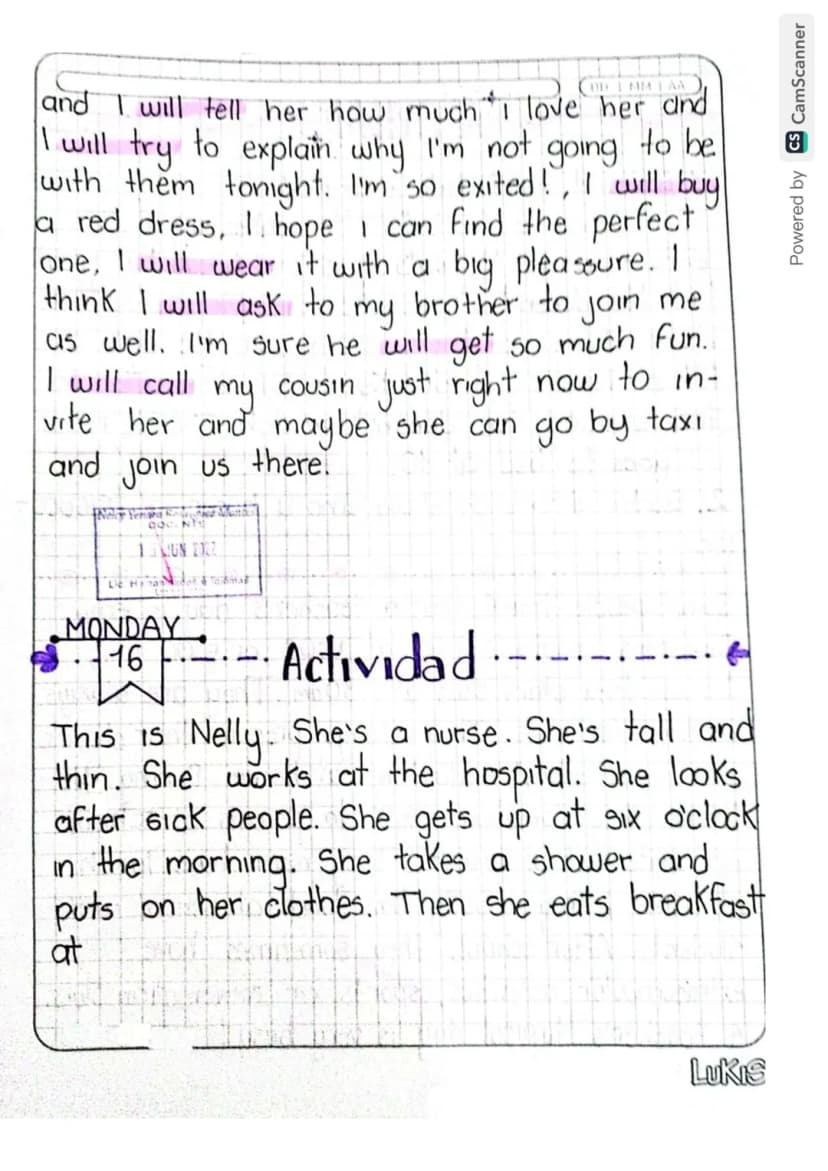 DD | MM | AA
and I will tell her how much i love her and
I will try to explain why I'm not going to be
with them tonight. I'm so exited!, I will buy
a red dress, I hope i can find the perfect
one, I will wear it with a big pleassure. I
think I will ask to my brother to join me
as well. I'm sure he will get so much fun.
I will call my cousin just right now to in-
vite her and maybe she can go by taxi
and join us there.
JUN
MONDAY
16 Actividad
This is Nelly. She's a nurse. She's tall and
thin. She works at the hospital. She looks
after sick people. She gets up at six o'clock
in the morning. She takes a shower and
puts on her clothes. Then she eats breakfast
at
LUKIS
Powered by CS CamScanner